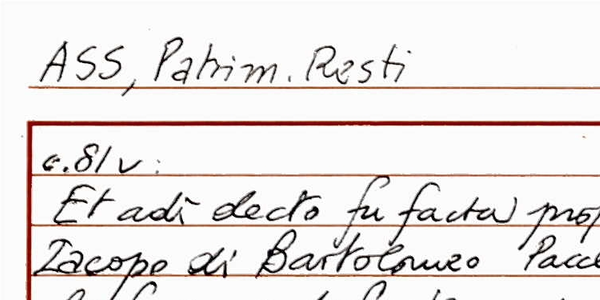 ASS, Patrim. Resti
c.81v:
Et adì decto fu facta prop
Iacopo di Bartolomeo Pacc